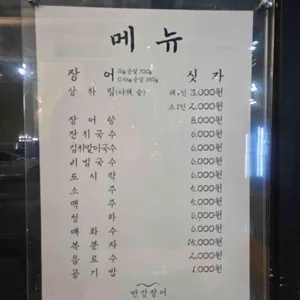 메 뉴
장 어 1kg 손질 700g 싯 가
0.5kg 손질 350g
상 차 림 (야채, 숯) 대인 3,000원
소인 2,000원
장 어 탕 8,000원
잔 치 국 수 6,000원
김치말이국수 6,000원
비 빔 국 수 6,000원
도 시 락 6,000원
소 주
맥 주
청 하
매 화 수 6,000원
복 분 자
음 료 수 2,000원
공 기 밥 1,000원
민강장어